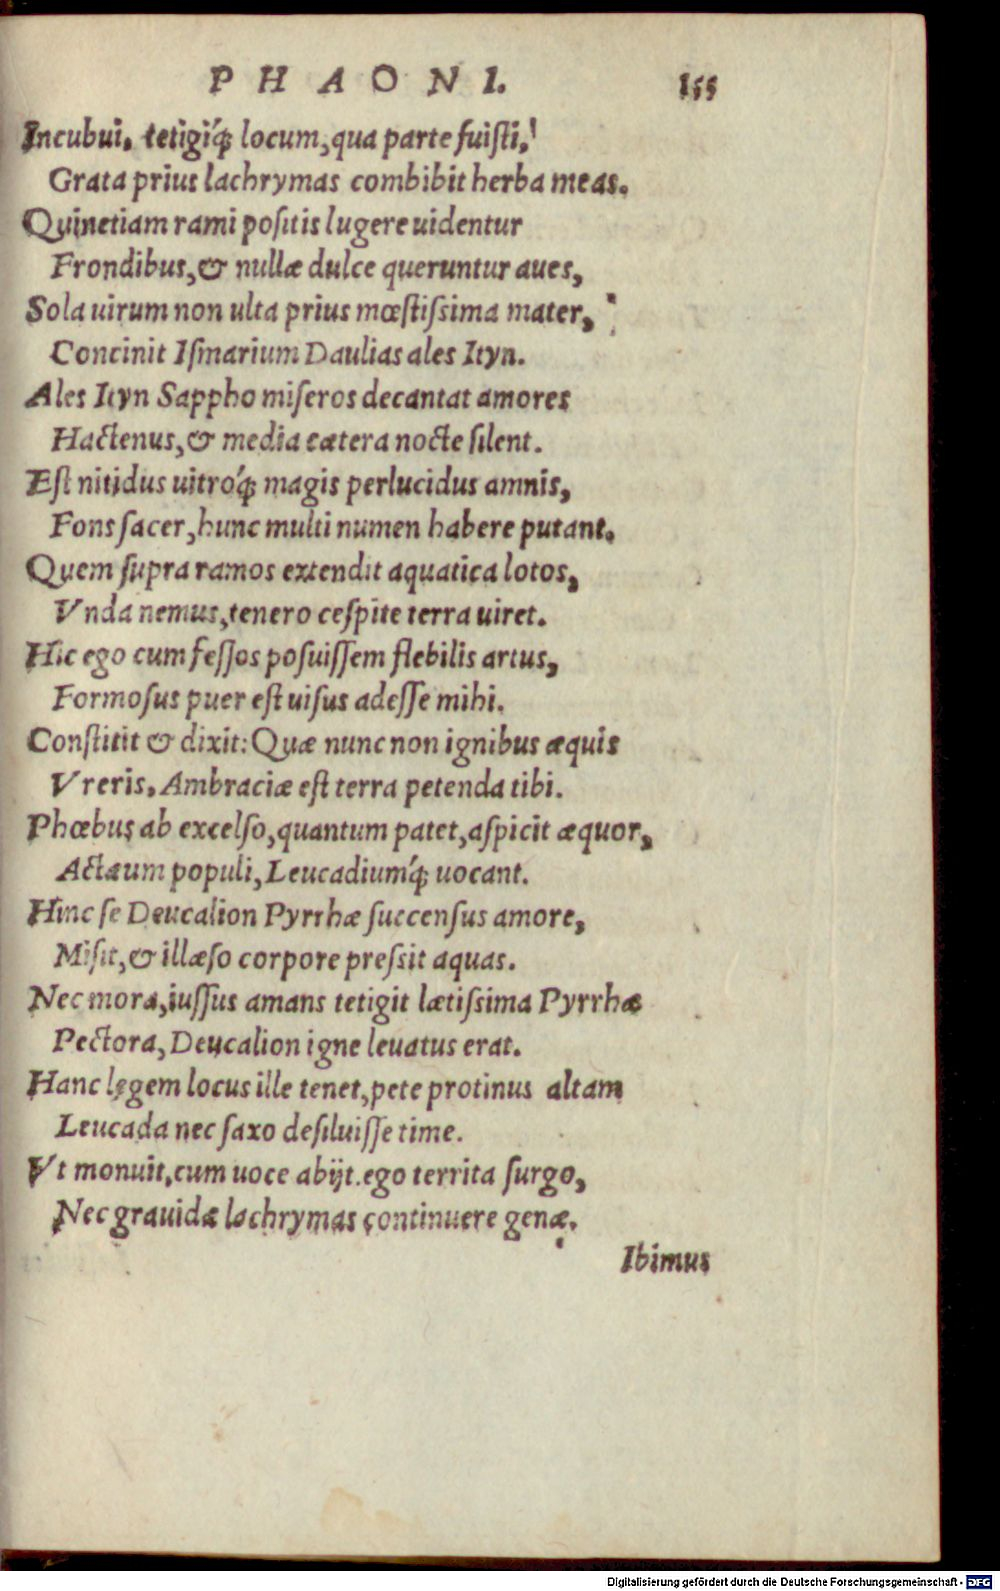 PHAONI. 155
Incubui, tetigiq́; locum, qua parte fuiſti,
Grata prius lachrymas combibit herba meas.
Quinetiam rami poſitis lugere uidentur
Frondibus, & nullæ dulce queruntur aues,
Sola uirum non ulta prius mœſtiſsima mater,
Concinit Iſmarium Daulias ales Ityn.
Ales Ityn Sappho miſeros decantat amores
Hactenus, & media cætera nocte ſilent.
Eſt nitidus uitroq́; magis perlucidus amnis,
Fons ſacer, hunc multi numen habere putant.
Quem ſupra ramos extendit aquatica lotos,
Vnda nemus, tenero ceſpite terra uiret.
Hic ego cum feſſos poſuiſſem flebilis artus,
Formoſus puer eſt uiſus adeſſe mihi.
Conſtitit & dixit: Quæ nunc non ignibus æquis
Vreris, Ambraciæ eſt terra petenda tibi.
Phœbus ab excelſo, quantum patet, aſpicit æquor,
Actæum populi, Leucadiumq́; uocant.
Hinc ſe Deucalion Pyrrhæ ſuccenſus amore,
Miſit, & illæſo corpore preſsit aquas.
Nec mora, iuſſus amans tetigit lætiſsima Pyrrhæ
Pectora, Deucalion igne leuatus erat.
Hanc legem locus ille tenet, pete protinus altam
Leucada nec ſaxo deſiluiſſe time.
Vt monuit, cum uoce abijt. ego territa ſurgo,
Nec grauidæ lachrymas continuere genæ.
Ibimus
Digitalisierung gefördert durch die Deutsche Forschungsgemeinschaft - DFG